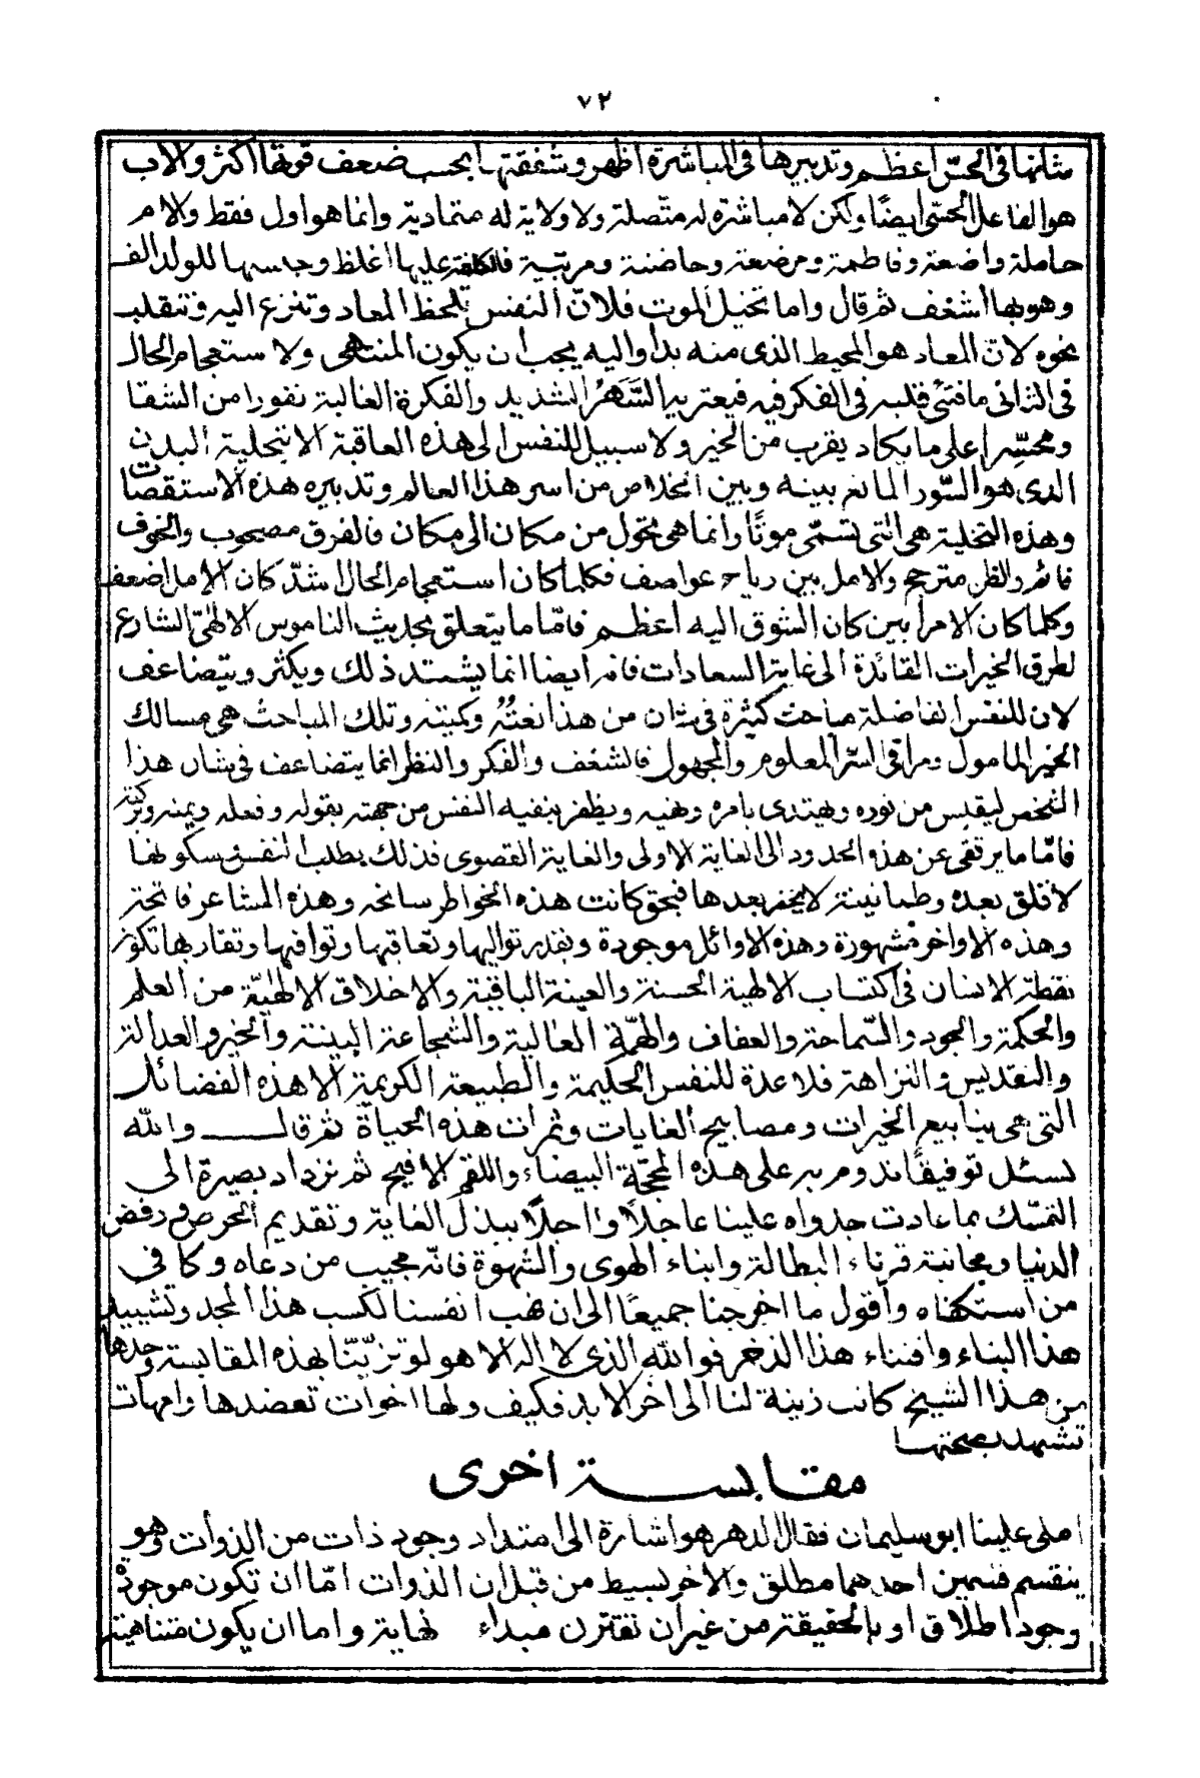 ٧٢
شانها فى الحسّ اعظم وتدبيرها فى المباشرة اظهر وشفقتها بحسب ضعف قوتها اكثر والاب
هو الفاعل الحسّى ايضًا ولكن لا مباشرة له متّصلة ولا ولاية له متمادية وانما هو اول فقط والام
حاملة واضعة وفاطمة ومرضعة وحاضنة ومربّية فالكلفة عليها اغلظ وجلسها للولد الف
وهو بها اشغف ثم قال واما تخيل الموت فلانّ النفس تلحظ المعاد وتنزع اليه وتنقلب
نحوه لانّ المعاد هو المحيط الذى منه بدا واليه يجب ان يكون المنتهى ولا ستعجام الحال
فى الثانى ما فتئ قلبه فى الفكر فيه فيعتريه السَّهَرُ الشديد والفكرة الغالبة نفورا من الشقا
وتحسّرا على ما يكاد يقرب من الخير ولا سبيل للنفس الى هذه العاقبة الا بتخلية البدن
الذى هو السّور المانع بينه وبين الخلاص من اسر هذا العالم وتدبيره هذه الاستقصات
وهذه التخلية هى التى تسمّى موتًا وانما هى تحول من مكان الى مكان فالفرق مصحوب والخوف
قائم والظن مترجح والامل بين رياح عواصف فكلما كان استعجام الحال اشدّ كان الامل اضعف
وكلما كان الامر ابين كان الشوق اليه اعظم فامّا ما يتعلق بحديث الناموس الالهىّ الشارع
لطرق الخيرات القائدة الى غاية السعادات فانه ايضا انما يشتد ذلك ويكثر ويتضاعف
لان للنفس الفاضلة مباحث كثيرة فى شان من هذا نعتُهُ وكميته وتلك المباحث هى مسالك
الخير المامول ومراقى السّر المعلوم والمجهول فالشغف والفكر والنظر انما يتضاعف فى شان هذا
الشخص ليقبس من نوره ويهتدى بامره ونهيه ويظفر ببغية النفس من جهته بقوله وفعله ويمنه وبركته
فامّا ما يرتقى عن هذه الحدود الى الغاية الاولى والغاية القصوى فذلك يطلب النفس سكونها
لا قلق بعده وطمانينة لا يحفز بعدها فبحق كانت هذه الخواطر سانحه وهذه المشاعر فاتحة
وهذه الاواخر مشهورة وهذه الاوائل موجودة وبقدر تواليها وتعاقبها وتوافيها وتقاربها تكون
نقطة الانسان فى اكتساب الالهية الحسنة والعينة الباقية والاخلاق الالهيّة من العلم
والحكمة والجود والسّماحة والعفاف والهمّة العالية والشجاعة البينة والخير والعدالة
والتقديس والنزاهة فلا عدة للنفس الحكيمة والطبيعة الكريمة الا هذه الفضائل
التى هى ينابيع الخيرات ومصابيح الغايات وثمرات هذه الحياة ثم قال والله
نسئل توفيقًا ندوم به على هذه المحجّة البيضاء واللقم الافيح ثم نزداد بصيرة الى
التمسّك بما عادت جدواه علينا عاجلًا واجلًا ببذل الغاية وتقديم الحرص فى رفض
الدنيا ومجانبة قرناء البطالة وابناء الهوى والشهوة فانّه مجيب من دعاه وكافى
من استكفاه واقول ما احوجنا جميعًا الى ان نهب انفسنا لكسب هذا المجد وتشييد
هذا البناء واقتناء هذا الذخر فوالله الذى لا اله الا هو لو تزيّنّا بهذه المقابسة وحدها
من هذا الشيخ كانت زينة لنا الى اخر الابد فكيف ولها اخوات تعضدها وامهات
تشهد بصحتها
مقابسة اخرى
املى علينا ابو سليمان فقال الدهر هو اشارة الى امتداد وجود ذات من الذوات وهو
ينقسم قسمين احدهما مطلق والاخر بسيط من قبل ان الذوات امّا ان تكون موجودة
وجودا طلاق او بالحقيقة من غير ان تقترن مبداء نهاية واما ان يكون متناهية